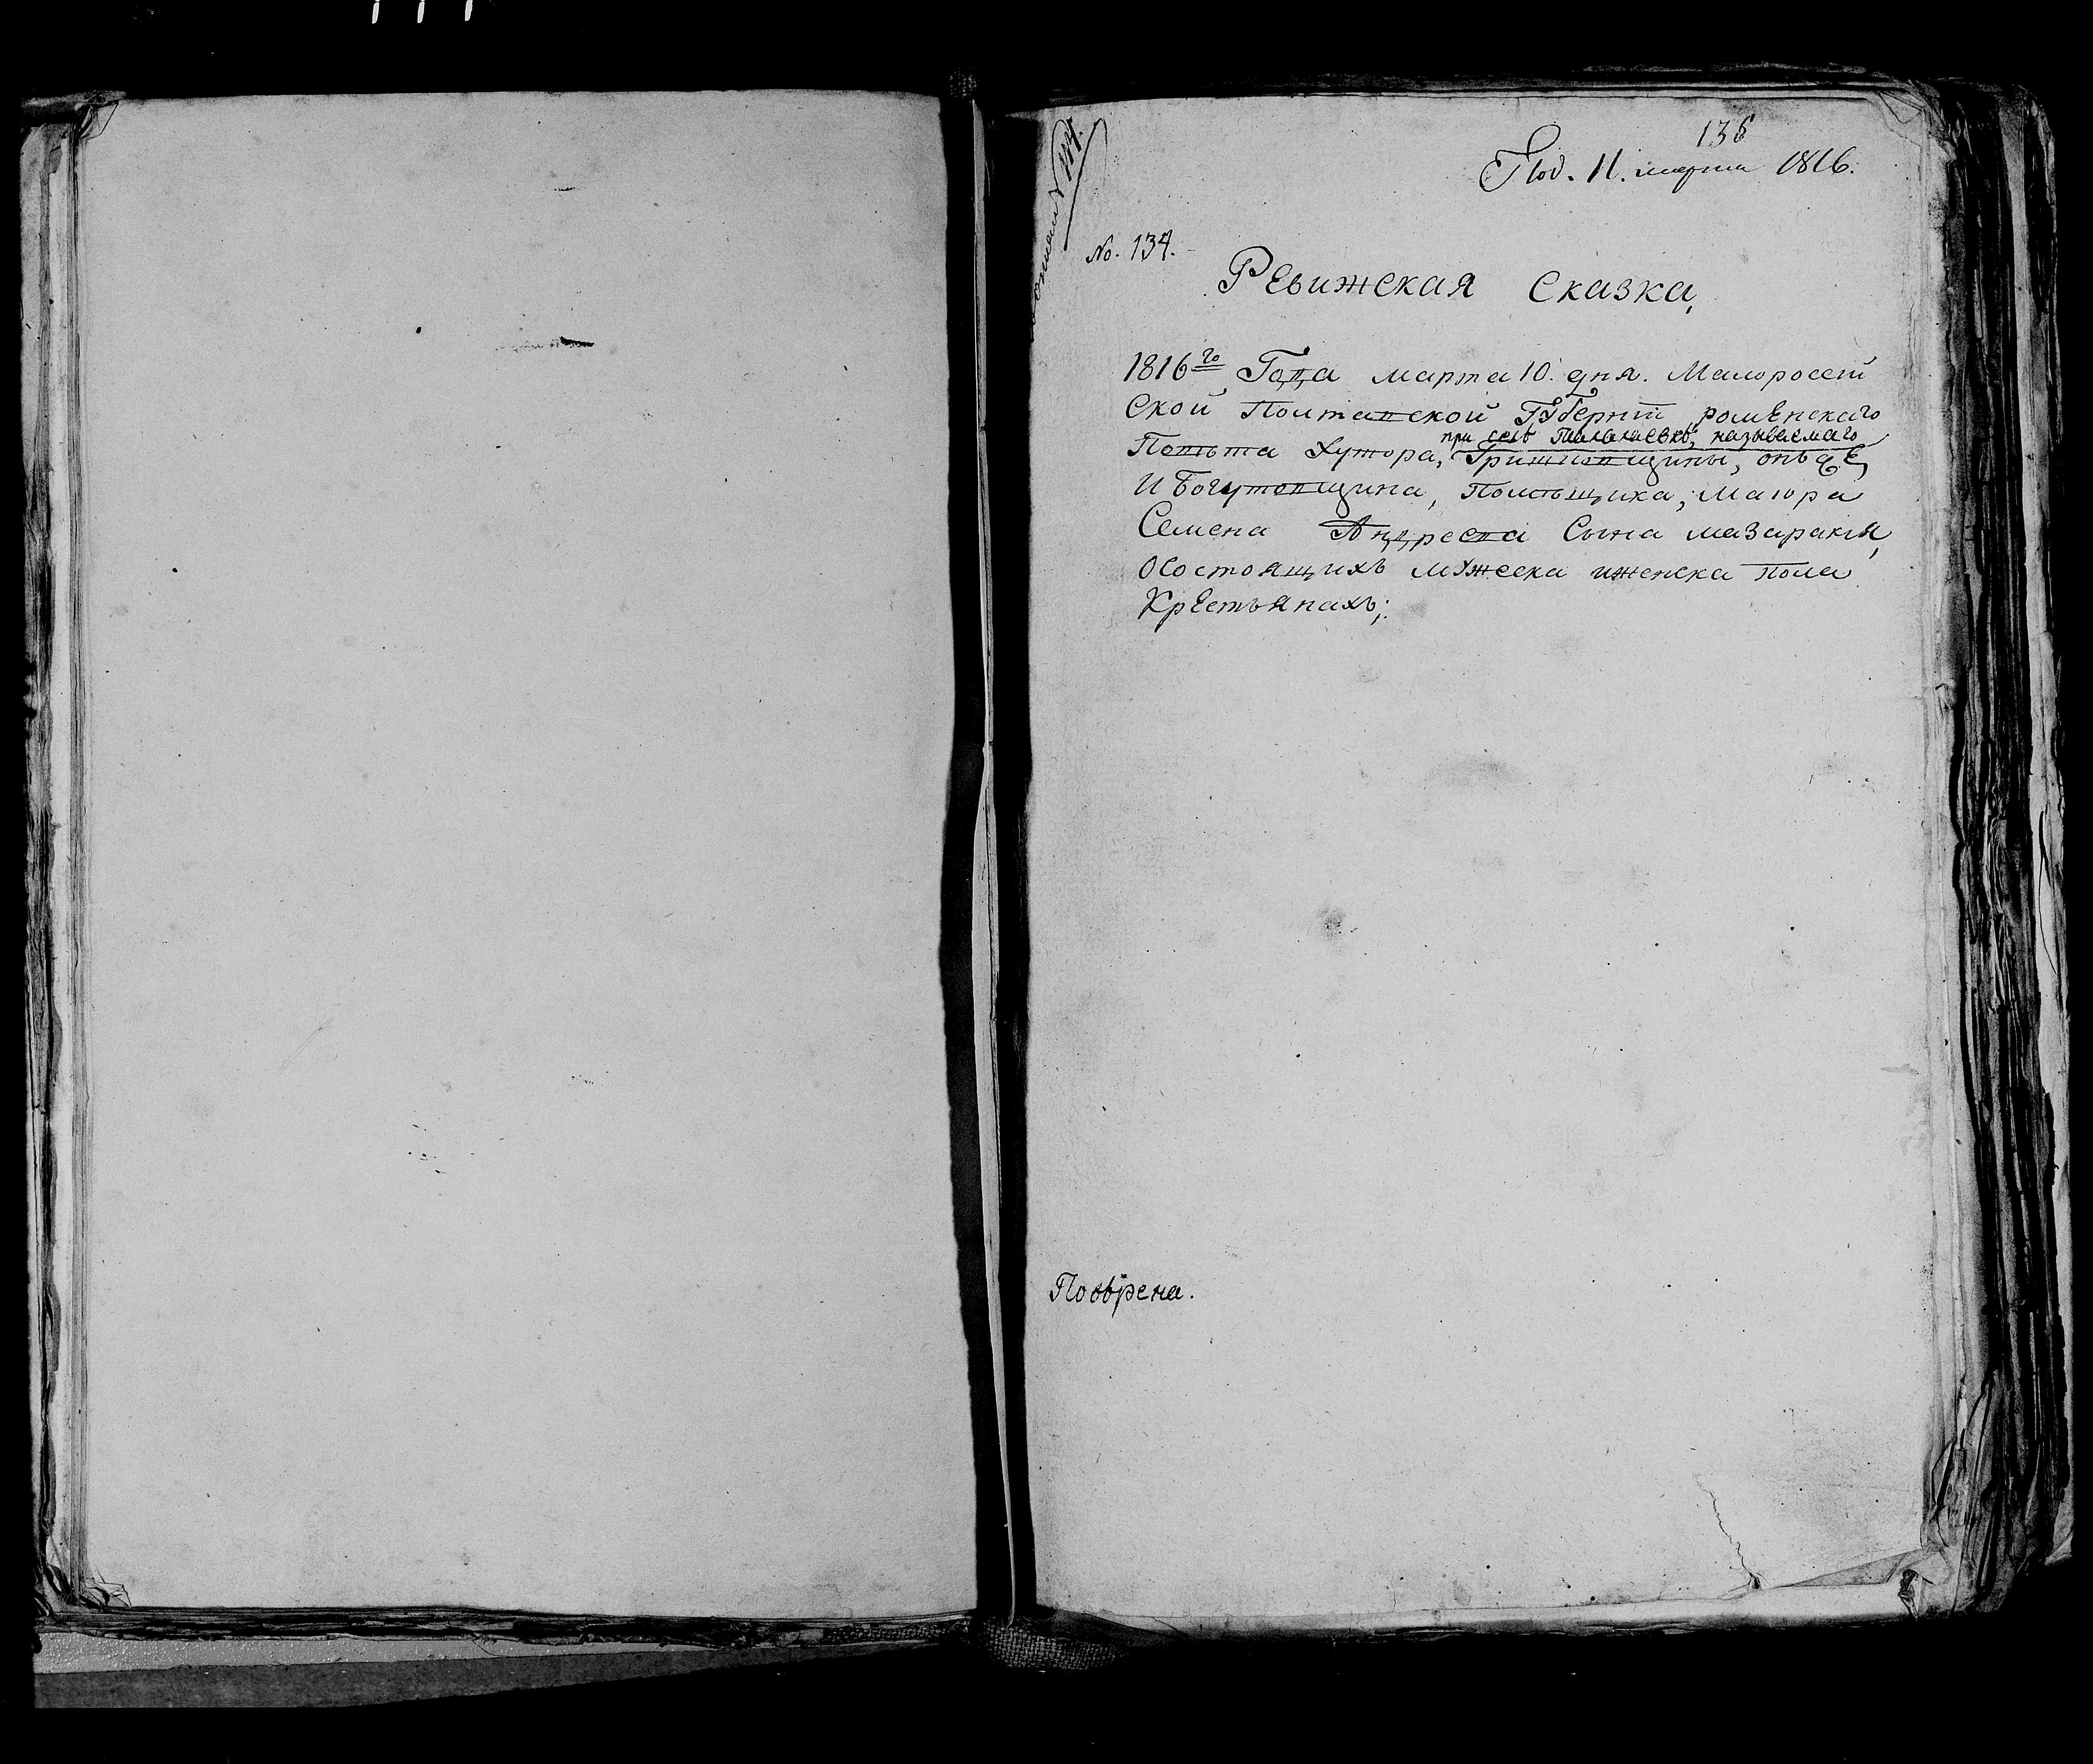 135
Под. 11. марта 1816.
No. 134.
Ревижская Сказка,
1816го Года марта 10. дня. Малоросеій
Ской Полтавской Губерніи роменского
Повѣта Хутора, при селѣ называемаго
Гришовщины, онъ
И Богутовщина, Помѣщика, Маюра
Семена Андреева Сына мазаракія,
Осостоящихъ мужеска иженска пола
Крестьянахъ;
Повѣрена.